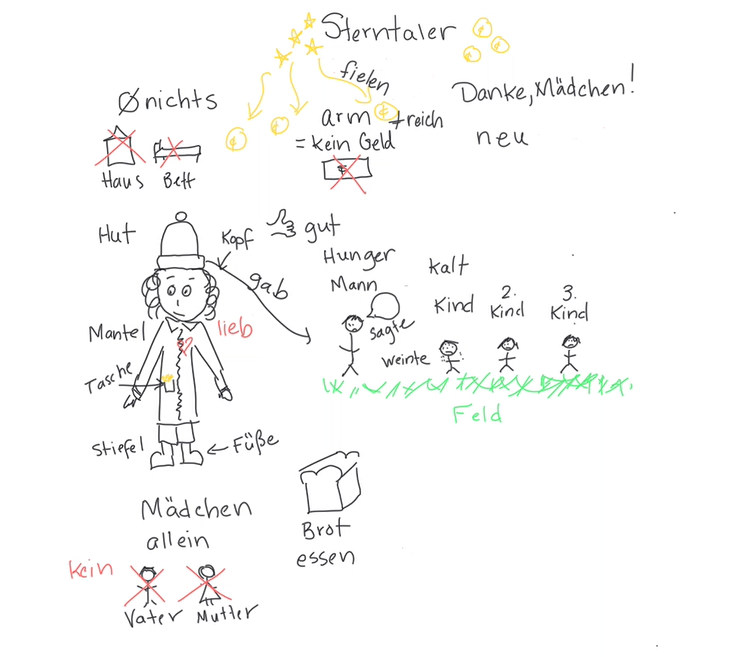 Sterntaler
fielen
Danke, Mädchen!
neu
Ø nichts
Haus
Bett
arm + reich
= kein Geld
Hut
Kopf
gut
gab
Hunger
Mann
sagte
kalt
Kind
2.
Kind
3.
Kind
weinte
Feld
Mantel
lieb
Tasche
Stiefel
Füße
Mädchen
allein
kein
Vater
Mutter
Brot
essen